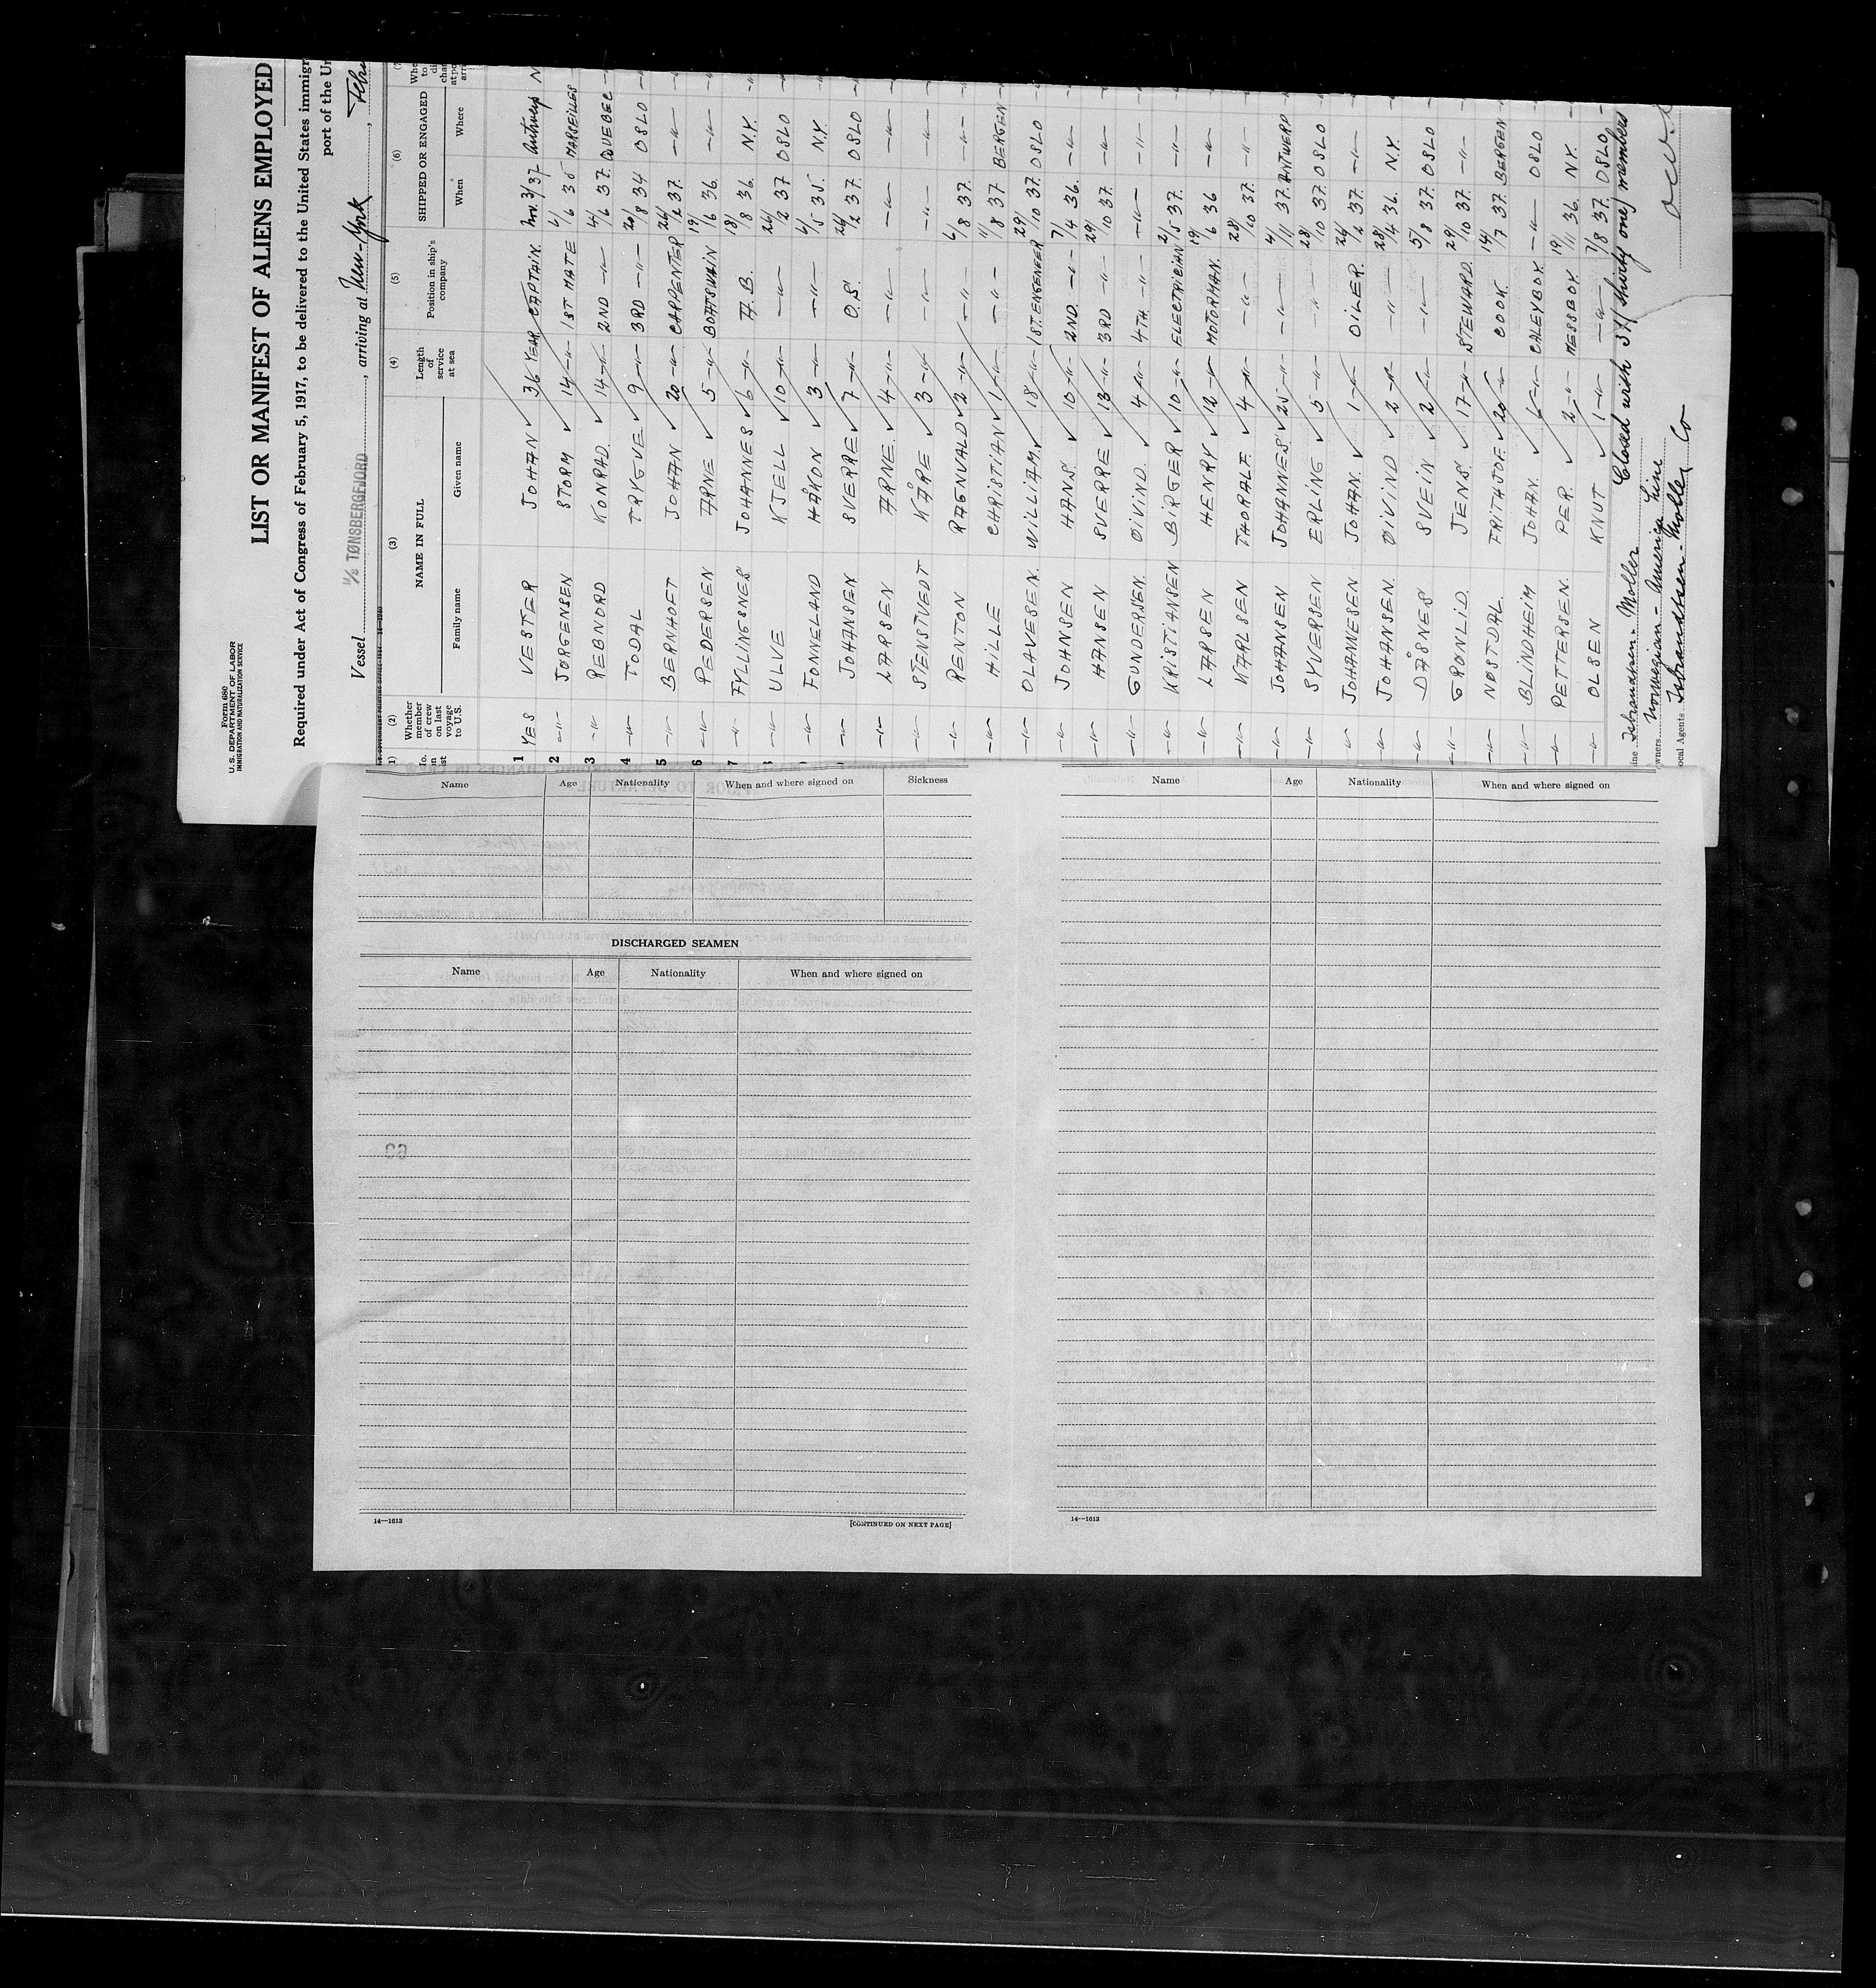 Form 680
U. S. DEPARTMENT OF LABOR
IMMIGRATION AND NATURALIZATION SERVICE
LIST OR MANIFEST OF ALIENS EMPLOYED
Required under Act of Congress of February 5, 1917, to be delivered to the United States immigr
port of the Un
Vessel M/S TØNSBERGFJORD, arriving at New-York,
(2) (3) (4) (5) (6)
Whether member of crew on last voyage to U.S. NAME IN FULL Length of service at sea Position in ship's company SHIPPED OR ENGAGED
Family name Given name When Where
1 YES VESTER JOHAN 36 YEAR CAPTAIN Nov. 3/37 Antwerp
2 -"- JORGENSEN STORM 14 -"- 1ST MATE 4/6 35 MARSEILLES
3 -"- REBNORD KONRAD. 14 -"- 2ND -"- 4/6 37. QUEBEC
4 -"- TODAL TRYGVE 9 -"- 3RD -"- 20/8 34 OSLO
5 -"- BERNHOFT JOHAN 20 -"- CARPENTER 26/2 37. -"-
6 -"- PEDERSEN ARNE 5 -"- BOATSWAIN 19/6 36. -"-
7 -"- FYLLINGSNES JOHANNES 6 -"- A.B. 18/8 36. N.Y.
-"- ULVE KJELL 10 -"- -"- 26/2 37 OSLO
-"- FONNELAND HÅKON 3 -"- -"- 4/5 35. N.Y.
-"- JOHANSEN SVERRE 7 -"- O.S. 26/2 37. OSLO
-"- LARSEN ARNE. 4 -"- -"- -"- -"-
STENSTVEDT KÅRE 3 -"- -"- -"- -"-
-"- RENTON RAGNVALD 2 -"- -"- 6/8 37. -"-
-"- HILLE CHRISTIAN 1 -"- -"- 11/8 37 BERGEN
-"- OLAVESEN. WILLIAM. 18 -"- 1ST. ENGENEER 29/10 37. OSLO
-"- JOHNSEN HANS. 10 -"- 2ND. -"- 7/4 36. -"-
-"- HANSEN SVERRE 13 -"- 3RD -"- 29/10 37. -"-
-"- GUNDERSEN. OIVIND. 4 -"- 4TH -"- -"- -"-
-"- KRISTIANSEN BIRGER 10 -"- ELECTRICIAN 2/5 37. -"-
-"- LARSEN HENRY 12 -"- MOTORMAN. 19/6 36 -"-
-"- KARLSEN THORALF. 4 -"- -"- 28/10 37. -"-
-"- JOHANSEN JOHANNES 25 -"- -"- 4/11 37. ANTWERP
-"- SYVERSEN ERLING 5 -"- -"- 28/10 37. OSLO
-"- JOHANNESEN JOHAN. 1 -"- OILER. 26/2 37. -"-
-"- JOHANSEN. OIVIND 2 -"- -"- 28/4 36. N.Y.
-"- DÅSNES SVEIN 2 -"- -"- 5/8 37. OSLO
-"- GRONLID. JENS. 17 -"- STEWARD. 29/10 37. -"-
-"- NOSTDAL. FRITHJOF. 20 -"- COOK. 14/7 37. BERGEN
-"- BLINDHEIM JOHAN. 6 -"- GALEYBOY -"- OSLO
-"- PETTERSEN. PER. 2 -"- MESSBOY. 19/11 36. N.Y.
-"- OLSEN KNUT 1 -"- -"- 7/8 37. OSLO
Closed with 31 (thirty one) members
wners Norwegian-America Line
ocal Agents
Name Age Nationality When and where signed on Sickness
DISCHARGED SEAMEN
Name Age Nationality When and where signed on
14—1613 [CONTINUED ON NEXT PAGE]
Name Age Nationality When and where signed on
14—1613